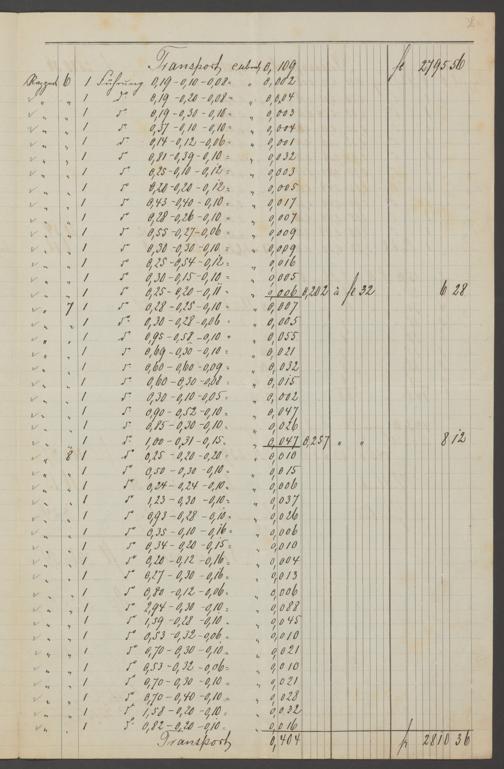 Transport cubit 0,109 fr 2795 56
Rapport 6 1 Führung 0,19-0,10-0,08= " 0,002
" " 1 " 0,19-0,20-0,08= " 0,004
" " 1 " 0,19-0,30-0,10= " 0,003
" " 1 " 0,37-0,10-0,10= " 0,004
" " 1 " 0,14-0,12-0,06= " 0,001
" " 1 " 0,81-0,39-0,10= " 0,032
" " 1 " 0,25-0,10-0,12= " 0,003
" " 1 " 0,20-0,20-0,12= " 0,005
" " 1 " 0,43-0,40-0,10= " 0,017
" " 1 " 0,28-0,26-0,10= " 0,007
" " 1 " 0,55-0,27-0,06= " 0,009
" " 1 " 0,30-0,30-0,10= " 0,009
" " 1 " 0,25-0,54-0,12= " 0,016
" " 1 " 0,30-0,15-0,10= " 0,005
" " 1 " 0,25-0,20-0,11= " 0,006 0,202 à fr 32 6 28
" 7 1 " 0,28-0,25-0,10= " 0,007
" " 1 " 0,30-0,28-0,06= " 0,005
" " 1 " 0,95-0,58-0,10= " 0,055
" " 1 " 0,69-0,30-0,10= " 0,021
" " 1 " 0,60-0,60-0,09= " 0,032
" " 1 " 0,60-0,30-0,08= " 0,015
" " 1 " 0,30-0,10-0,05= " 0,002
" " 1 " 0,90-0,52-0,10= " 0,047
" " 1 " 0,85-0,30-0,10= " 0,026
" " 1 " 1,00-0,31-0,15= " 0,047 0,257 " " 8 12
" 8 1 " 0,25-0,20-0,20= " 0,010
" " 1 " 0,50-0,30-0,10= " 0,015
" " 1 " 0,24-0,24-0,10= " 0,006
" " 1 " 1,23-0,30-0,10= " 0,037
" " 1 " 0,93-0,28-0,10= " 0,026
" " 1 " 0,35-0,10-0,16= " 0,006
" " 1 " 0,34-0,20-0,15= " 0,010
" " 1 " 0,20-0,12-0,16= " 0,004
" " 1 " 0,27-0,30-0,16= " 0,013
" " 1 " 0,80-0,12-0,06= " 0,006
" " 1 " 2,94-0,30-0,10= " 0,088
" " 1 " 1,59-0,28-0,10= " 0,045
" " 1 " 0,53-0,32-0,06= " 0,010
" " 1 " 0,70-0,30-0,10= " 0,021
" " 1 " 0,53-0,32-0,06= " 0,010
" " 1 " 0,70-0,30-0,10= " 0,021
" " 1 " 0,70-0,40-0,10= " 0,028
" " 1 " 1,58-0,20-0,10= " 0,032
" " 1 " 0,82-0,20-0,10= " 0,016
Transport 0,404 fr 2810 36